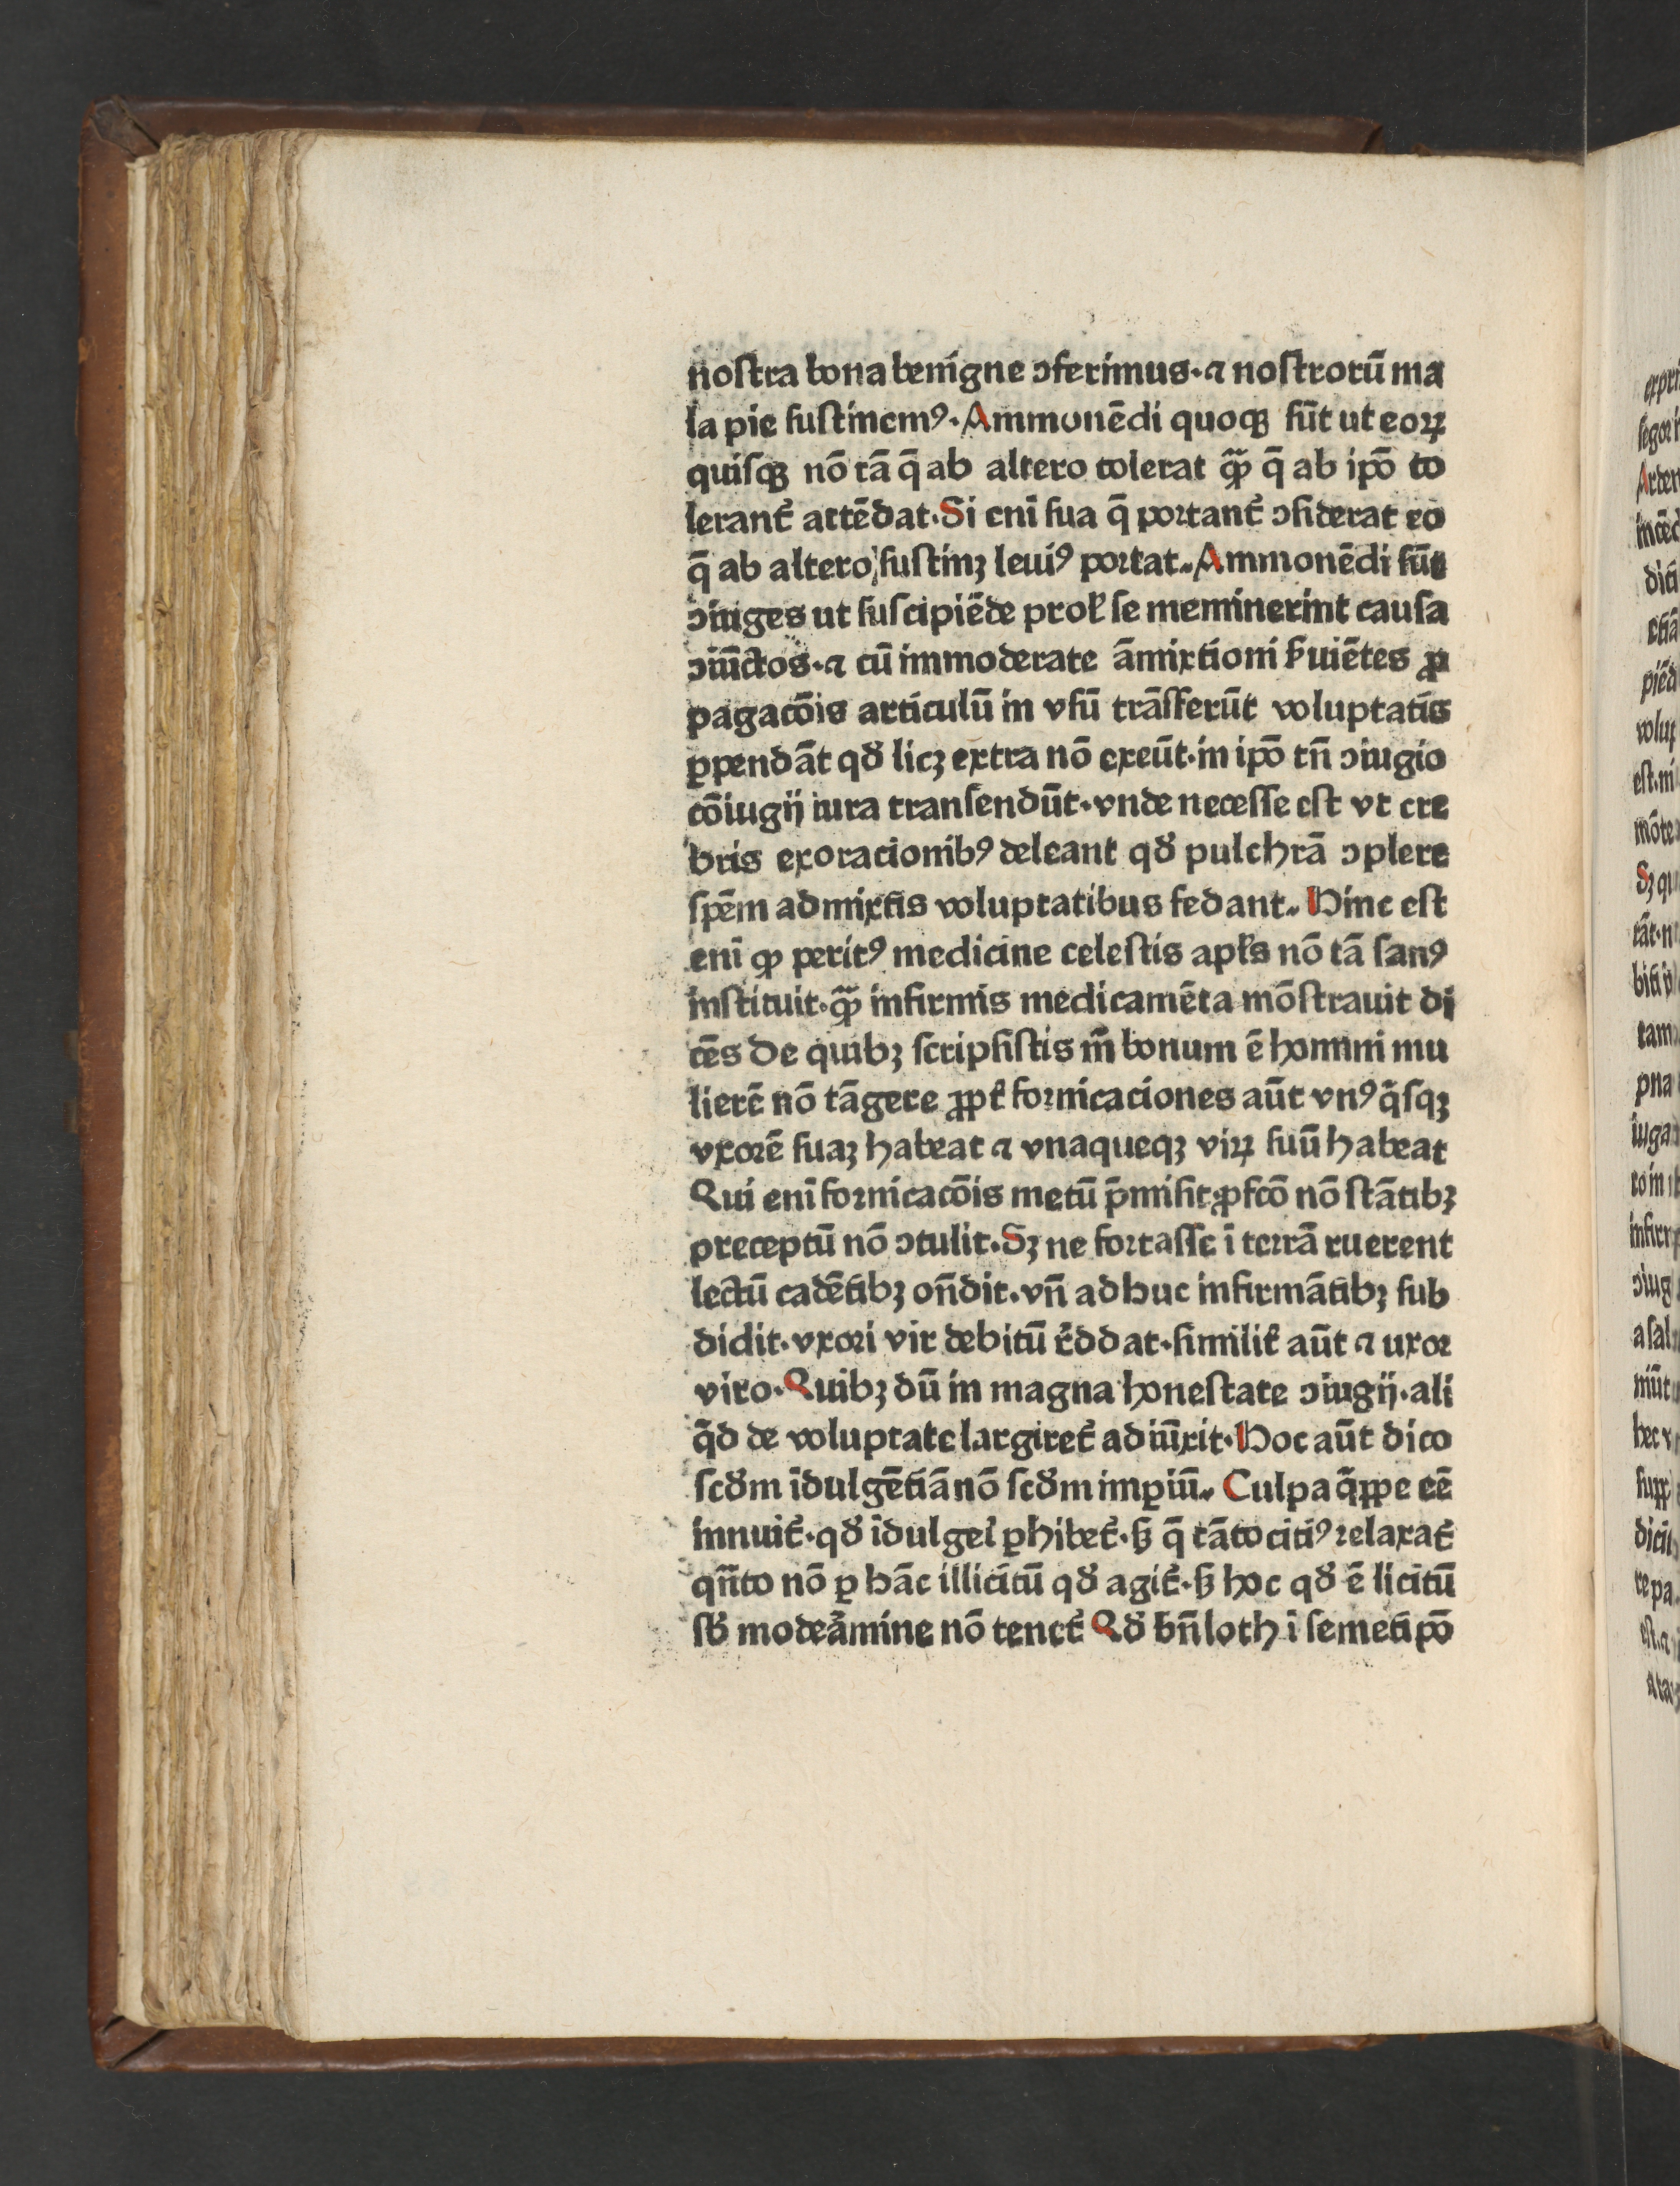 nostra bona benigne ɔferimus·⁊ nostrorū ma
la pie sustinemꝰ·Ammonēdi quoqꝫ sūt ut eoꝝ
quisqꝫ nō tā q̄ ab altero tolerat qͣꝫ q̄ ab ip̄o to
lerant᷑ attēdat·Si eni̅ sua q̄ portant᷑ ɔsiderat eo
q̄ ab altero sustinꝫ leuiꝰ portat·Ammonēdi sūt
ɔiuges ut suscipiēde prol̕ se meminerint causa
ɔiūctos·⁊ cū immoderate āmixtioni ẜuiētes ꝓ
pagacōis articulū in vsū trāsferūt voluptatis
ꝑpendāt qđ licꝫ extra nō exeūt·in ip̄o tn̄ ɔiugio
cōiugij iura transendūt·vnde necesse est vt cre
bris exoracionibꝰ deleant qđ pulchrā ɔplere
spēm admixtis voluptatibus fedant· Hinc est
eni̅ ꝙ peritꝰ medicine celestis apl̕s nō tā sanꝰ
instituit·qͣꝫ infirmis medicamēta mōstrauit di
cēs De quibꝫ scripsistis m̄ bonum ē homini mu
lierē nō tāgere ꝓpt᷑ fornicaciones aūt vnꝰq̄sqꝫ
vxorē suaꝫ habeat ⁊ vnaqueqꝫ viꝝ suū habeat
Qui eni̅ fornicacōis metū p̄misit·ꝓfcō nō stātibꝫ
preceptū nō ɔtulit·Sꝫ ne fortasse ī terrā ruerent
lectū cadētibꝫ on̄dit·vn̄ adhuc infirmātibꝫ sub
didit·vxori vir debitū r᷑ddat·similit᷑ aūt ⁊ uxor
viro·Quibꝫ dū in magna honestate ɔiugij·ali
q̄d de voluptate largiret᷑ adiūxit·Hoc aūt dico
scđm īdulgētiā nō scđm imꝑiū· Culpa q̄ppe eē
innuit᷑·qđ īdulgeī ꝑhibet᷑·ẜꝫ q̄ tāto citiꝰ relaxat᷑
qn̄to nō ꝑ hāc illicitū qđ agit᷑·ẜꝫ hoc qđ ē licitū
sb̄ modeᷓmine nō tenet᷑ Qđ bn̄ loth ī semetip̄o